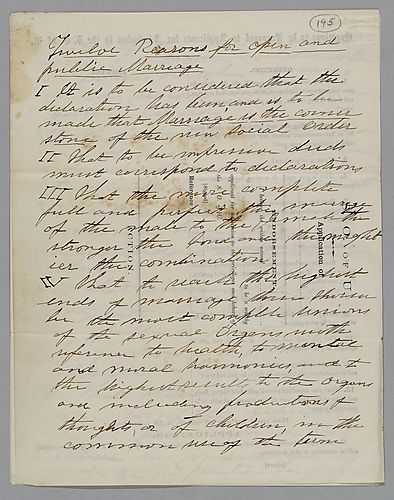 195
Twelve Reasons for open and
public Marriage
I It is to be considered that the
declaration has been, and is, to be
made that Marriage is the corner
stone of the new Social Order
II That to be impressive deeds
must correspond to declarations
III That the more complete
full and perfect the marriage
of the male to the female the
stronger the bond and the might
ier the combination
IV That to reach the highest
ends of marriage there should
be the most complete unions
of the sexual Organs with
reference to health, to mental
and moral harmonies, and to
the highest results, to the organs
and including productions of
thoughts, or of children, in the
common use of the term